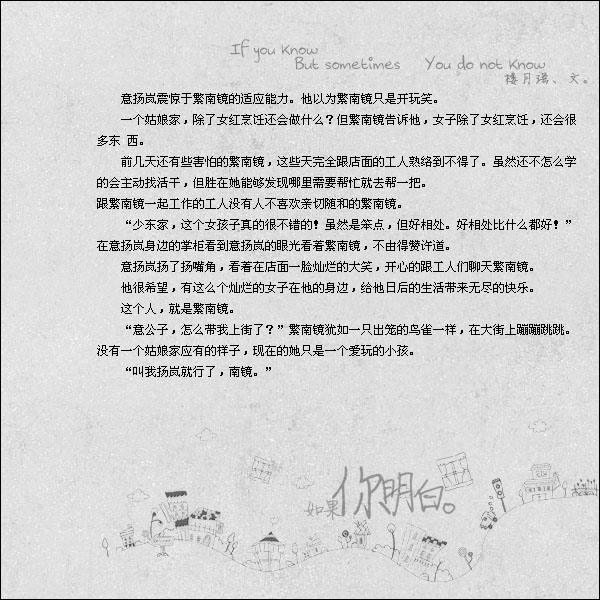 If you know
But sometimes You do not know
楼月潺、文。
意扬岚震惊于繁南镜的适应能力。他以为繁南镜只是开玩笑。
一个姑娘家，除了女红烹饪还会做什么？但繁南镜告诉他，女子除了女红烹饪，还会很
多东 西。
前几天还有些害怕的繁南镜，这些天完全跟店面的工人熟络到不得了。虽然还不怎么学
的会主动找活干，但胜在她能够发现哪里需要帮忙就去帮一把。
跟繁南镜一起工作的工人没有人不喜欢亲切随和的繁南镜。
“少东家，这个女孩子真的很不错的！虽然是笨点，但好相处。好相处比什么都好！”
在意扬岚身边的掌柜看到意扬岚的眼光看着繁南镜，不由得赞许道。
意扬岚扬了扬嘴角，看着在店面一脸灿烂的大笑，开心的跟工人们聊天繁南镜。
他很希望，有这么个灿烂的女子在他的身边，给他日后的生活带来无尽的快乐。
这个人，就是繁南镜。
“意公子，怎么带我上街了？”繁南镜犹如一只出笼的鸟雀一样，在大街上蹦蹦跳跳。
没有一个姑娘家应有的样子，现在的她只是一个爱玩的小孩。
“叫我扬岚就行了，南镜。”
如果你明白。